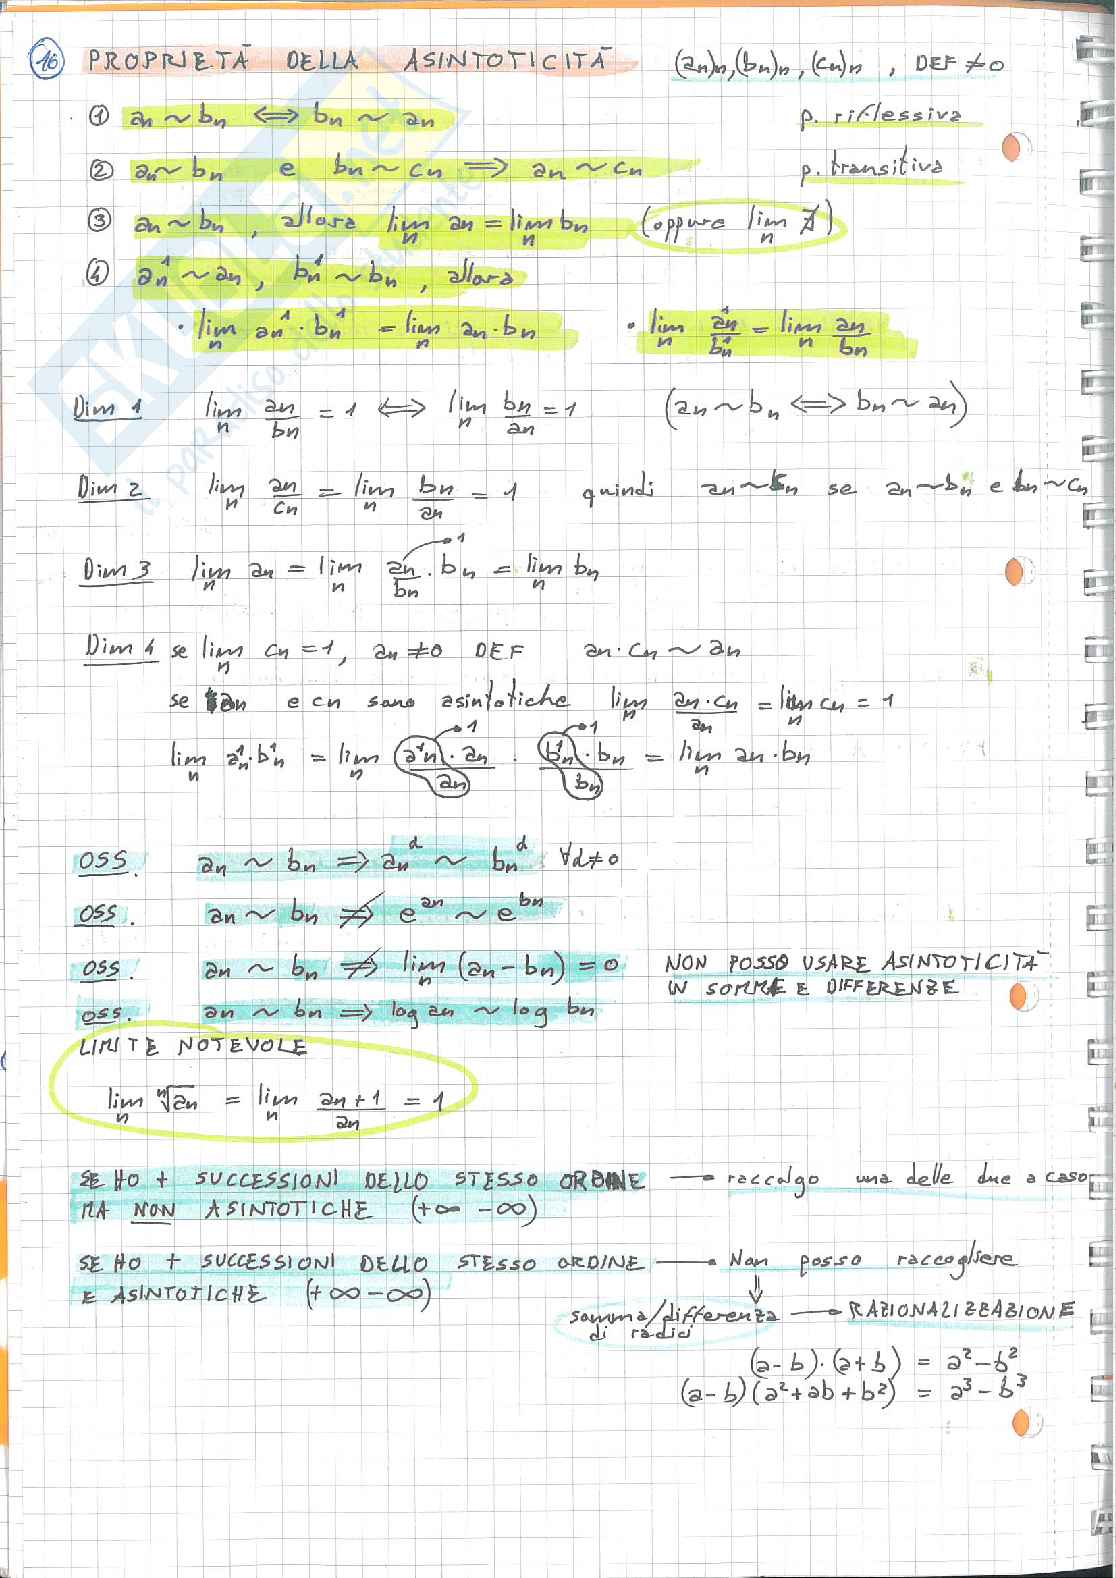 16 PROPRIETÀ DELLA ASINTOTICITÀ (an)n, (bn)n, (cn)n , DEF ≠0
① an ~ bn ⟺ bn ~ an p. riflessiva
② an ~ bn e bn ~ cn ⟹ an ~ cn p. transitiva
③ an ~ bn , allora lim n an = lim n bn (oppure lim n ∄)
④ an¹ ~ an, bn¹ ~ bn , allora
• lim n an¹ · bn¹ = lim n an · bn • lim n an¹/bn¹ = lim n an/bn
Dim 1 lim n an/bn = 1 ⟺ lim n bn/an = 1 (an ~ bn ⟺ bn ~ an)
Dim 2 lim n an/cn = lim n bn/an = 1 quindi an ~ cn se an ~ bn e bn ~ cn
Dim 3 lim n an = lim n an/bn · bn = lim n bn → 1
Dim 4 se lim n cn = 1, an ≠ 0 DEF an · cn ~ an
se an e cn sono asintotiche lim n an · cn/an = lim n cn = 1
lim n an¹ · bn¹ = lim n a¹n · an/an · b¹n · bn/bn = lim n an · bn → 1 → 1
OSS. an ~ bn ⟹ an^α ~ bn^α ∀α≠0
OSS. an ~ bn ⇏ e^an ~ e^bn
OSS. an ~ bn ⇏ lim n (an - bn) = 0 NON POSSO USARE ASINTOTICITÀ
IN SOMME E DIFFERENZE
OSS. an ~ bn ⟹ log an ~ log bn
LIMITE NOTEVOLE
lim n ⁿ√an = lim n an+1/an = 1
SE HO + SUCCESSIONI DELLO STESSO ORDINE → raccolgo una delle due a caso
MA NON ASINTOTICHE (+∞ -∞)
SE HO + SUCCESSIONI DELLO STESSO ORDINE → Non posso raccogliere
E ASINTOTICHE (+∞ -∞) ⇓
somma/differenza → RAZIONALIZZAZIONE
di radici
(a-b)·(a+b) = a²-b²
(a-b)(a²+ab+b²) = a³-b³